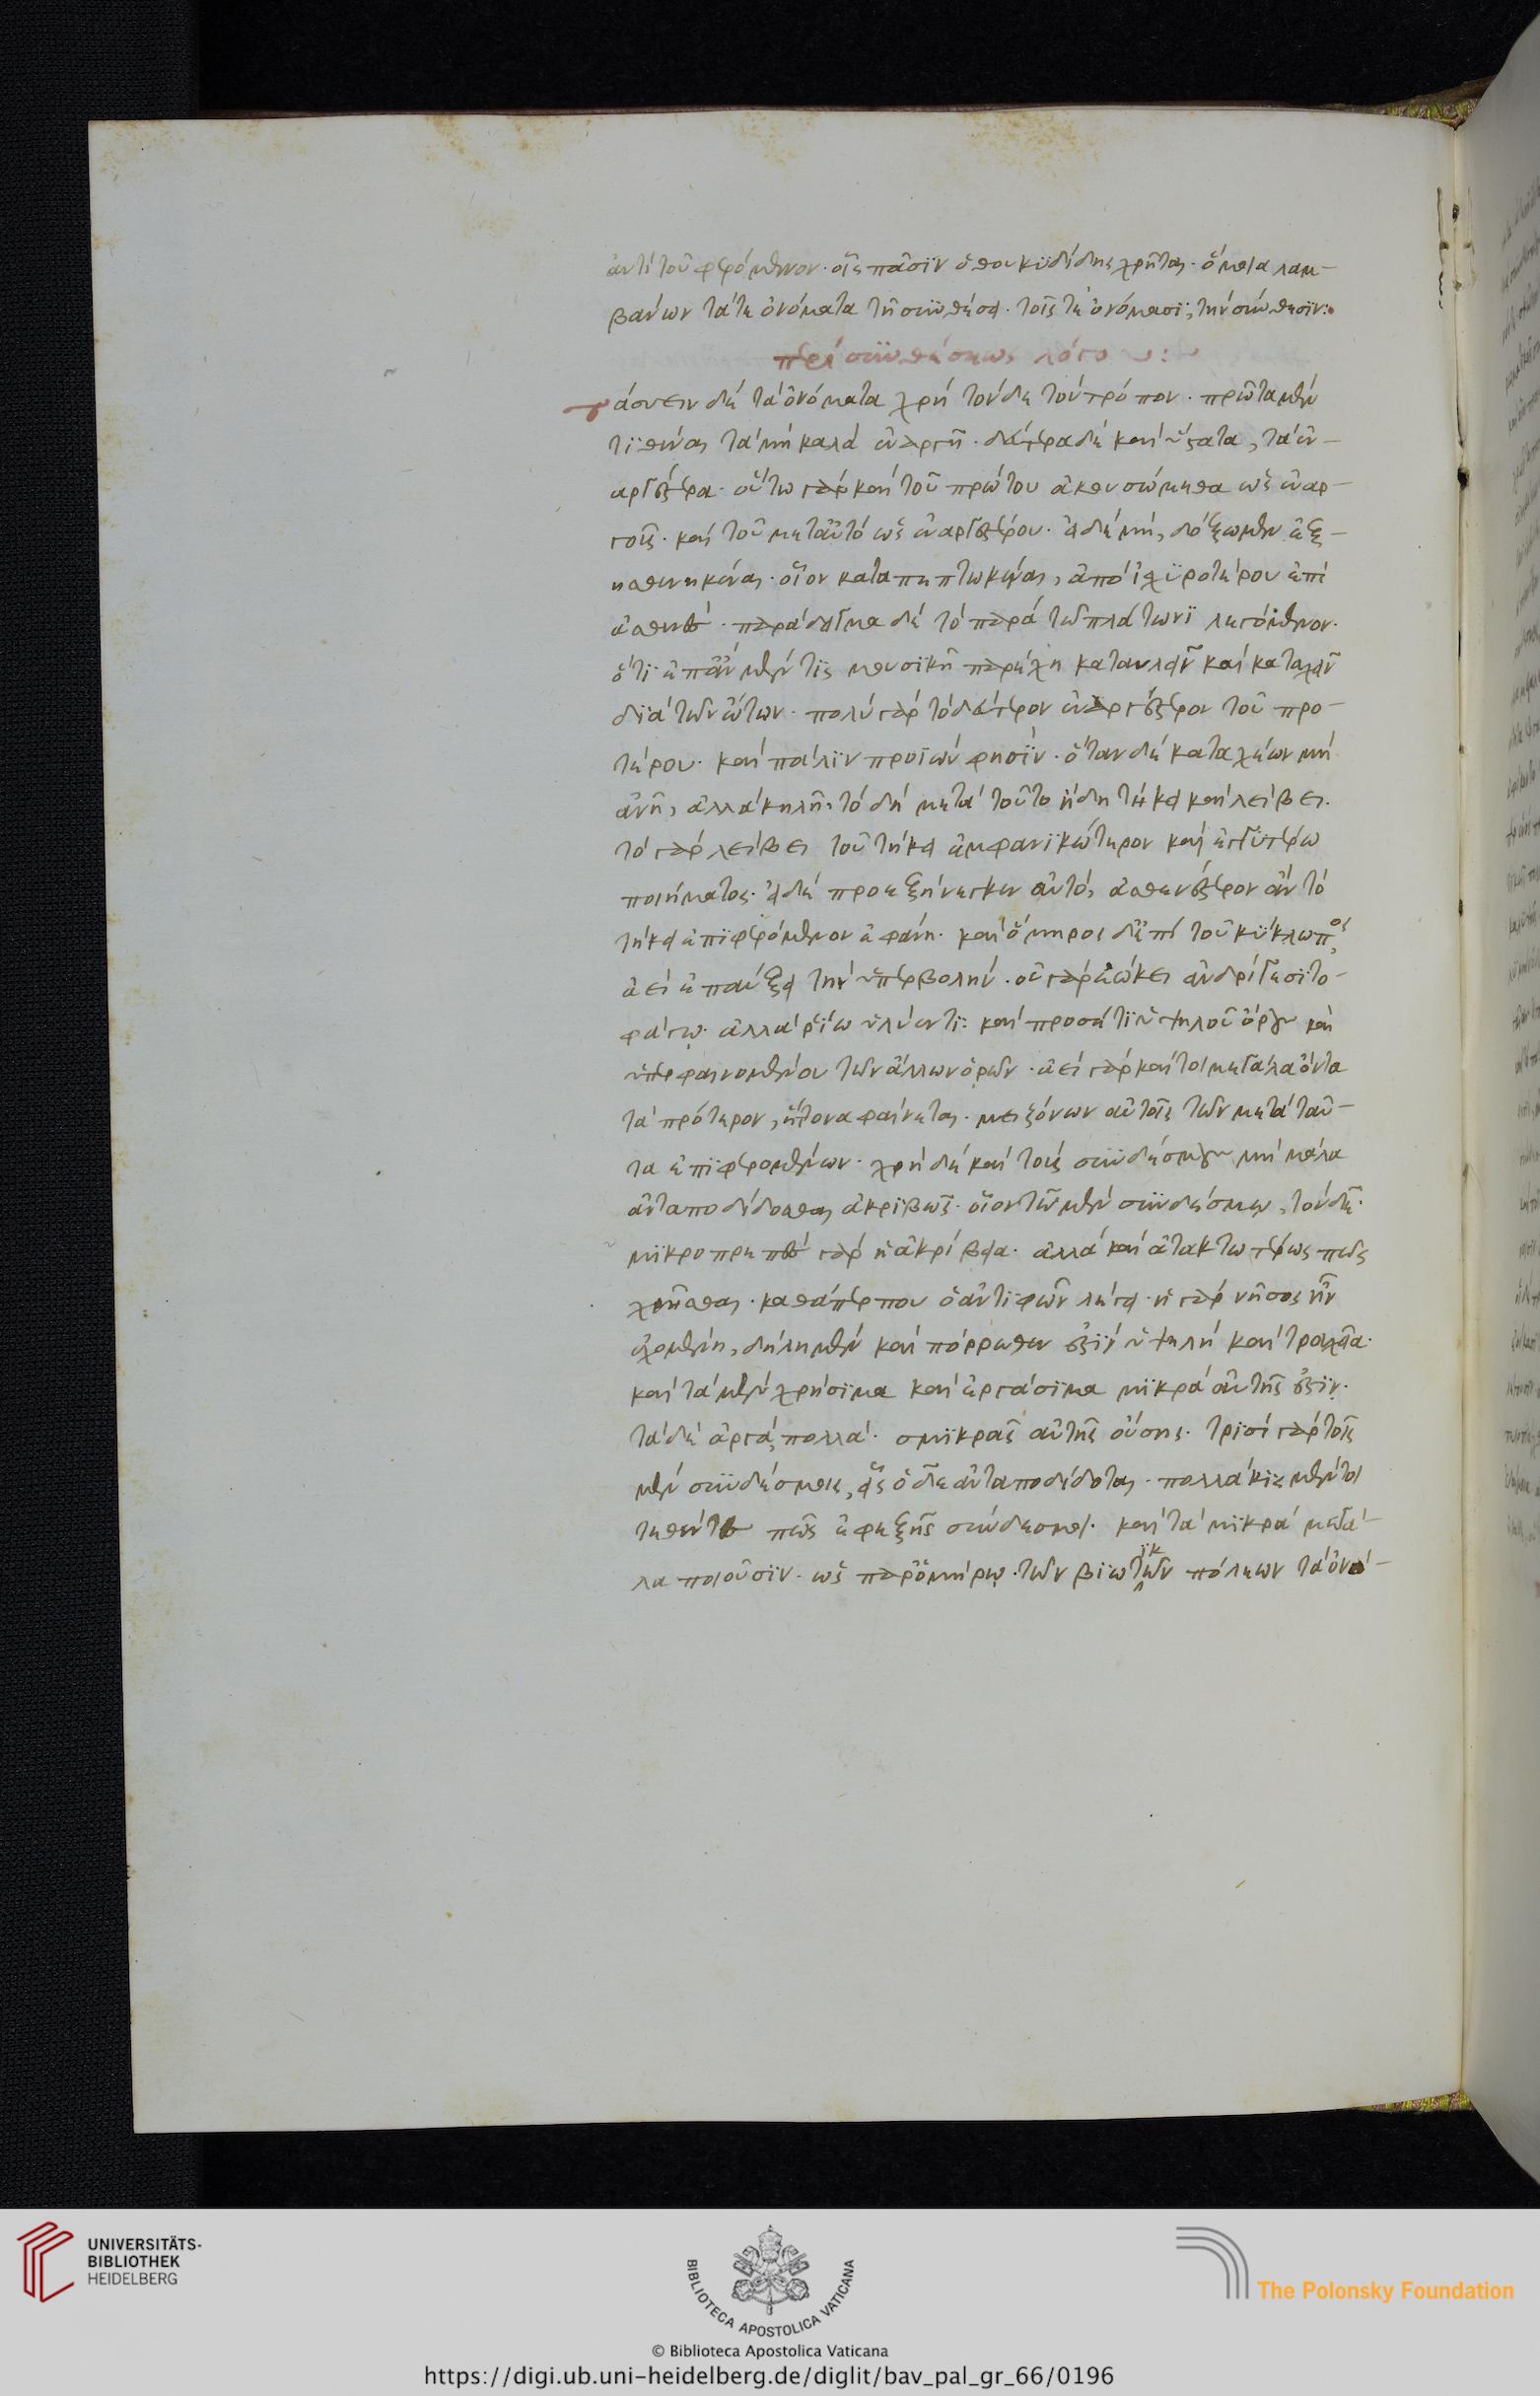 ἀντὶ τοῦ φερόμενον· οἷς πᾶσιν ὁ θουκυδίδης χρῆται· ὅμοια λαμ-
βάνων τά τε ὀνόματα τῇ συνθέσει· τοῖς τε ὀνόμασι, τὴν σύνθεσιν:
περὶ συνθέσεως λόγου :~
τάσσειν δὲ τὰ ὀνόματα χρὴ τόνδε τὸν τρόπον· πρῶτα μὲν
τιθέναι τὰ μὴ καλὰ ἐναργῆ· δεύτερα δὲ καὶ ὕστατα, τὰ ἐν-
αργέστερα· οὕτω γὰρ καὶ τοῦ πρώτου ἀκουσόμεθα ὡς ἐναρ-
γοῦς· καὶ τοῦ μετ αὐτὸ ὡς ἐναργεστέρου· εἰ δὲ μή, δόξωμεν ἐξ-
ησθενηκέναι· οἷον καταπεπτωκέναι, ἀπὸ ἰσχυροτέρου ἐπὶ
ἀσθενές· παράδειγμα δὲ τὸ παρὰ τῶ πλάτωνι λεγόμενον·
ὅτι ἐπὰν μέν τις μουσικῇ παρέχη καταυλεῖν καὶ καταχεῖν
διὰ τῶν ὤτων· πολὺ γὰρ τὸ δεύτερον ἐναργέστερον τοῦ προ-
τέρου· καὶ πάλιν προϊών φησιν· ὅταν δὲ καταχέων μὴ
ἀνῇ, ἀλλὰ κηλῇ, τὸ δὴ μετὰ τοῦτο ἤδη τήκει καὶ λείβει.
τὸ γὰρ λείβει τοῦ τήκει ἐμφανικώτερον καὶ ἐγγυτέρω
ποιήματος· εἰ δὲ προεξήνεγκεν αὐτό, ἀσθενέστερον ἂν τὸ
τήκει ἐπιφερόμενον ἐφάνη· καὶ ὅμηρος δὲ ἐπὶ τοῦ κύκλωπος,
ἀεὶ ἐπαύξει τὴν ὑπερβολήν· οὐ γὰρ ἐώκει ἀνδρί γε σιτο-
φάγῳ· ἀλλὰ ῥίω ὑλήεντι· καὶ προσέτι ὑψηλοῦ ὄρους καὶ
ὑπερφαινομένου τῶν ἄλλων ὀρῶν· ἀεὶ γὰρ καίτοι μεγάλα ὄντα
τὰ πρότερον, ἥττονα φαίνεται· μειζόνων αὐτοῖς τῶν μετὰ ταῦ-
τα ἐπιφερομένων· χρὴ δὲ καὶ τοὺς συνδέσμους μὴ μάλα
ἀνταποδίδοσθαι ἀκριβῶς· οἷον τῶ μὲν συνδέσμω, τὸν δέ·
μικροπρεπὲς γὰρ ἡ ἀκρίβεια· ἀλλὰ καὶ ἀτακτωτέρως πως
χρῆσθαι· καθάπερ που ὁ ἀντιφῶν λέγει· ἡ γὰρ νῆσος ἣν
ἔχομεν, δήλη μὲν καὶ πόρρωθεν ἐστὶν ὑψηλὴ καὶ τραχεῖα·
καὶ τὰ μὲν χρήσιμα καὶ ἐργάσιμα μικρὰ αὐτῆς ἐστίν·
τὰ δὲ ἀργά, πολλά· σμικρᾶς αὐτῆς οὔσης· τρισὶ γὰρ τοῖς
μὲν συνδέσμοις, εἷς ὁ δὲ ἀνταποδίδοται· πολλάκις μέντοι
τεθέντες πως ἐφεξῆς σύνδεσμοι· καὶ τὰ μικρὰ μεγά-
λα ποιοῦσιν· ὡς παρ ὁμήρῳ· τῶν βιωτικῶν πόλεων τὰ ὀνό-
UNIVERSITÄTS-
BIBLIOTHEK
HEIDELBERG
BIBLIOTECA APOSTOLICA VATICANA
© Biblioteca Apostolica Vaticana
The Polonsky Foundation
https://digi.ub.uni-heidelberg.de/diglit/bav_pal_gr_66/0196